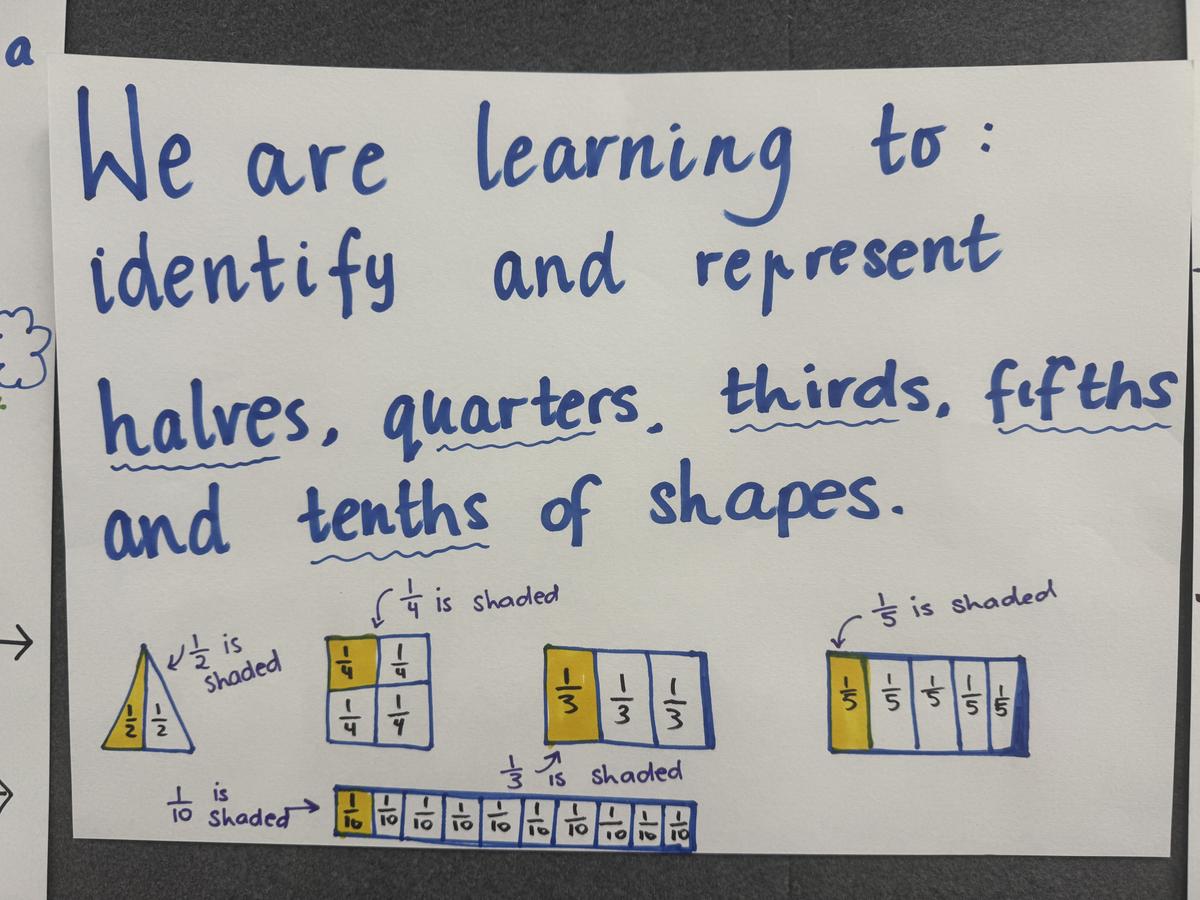 a
We are learning to:
identify and represent
halves, quarters, thirds, fifths
and tenths of shapes.
1/2 is
shaded
1/2 1/2
1/4 is shaded
1/4 1/4
1/4 1/4
1/3 1/3 1/3
1/3 is shaded
1/5 is shaded
1/5 1/5 1/5 1/5 1/5
1/10 is
shaded
1/10 1/10 1/10 1/10 1/10 1/10 1/10 1/10 1/10 1/10